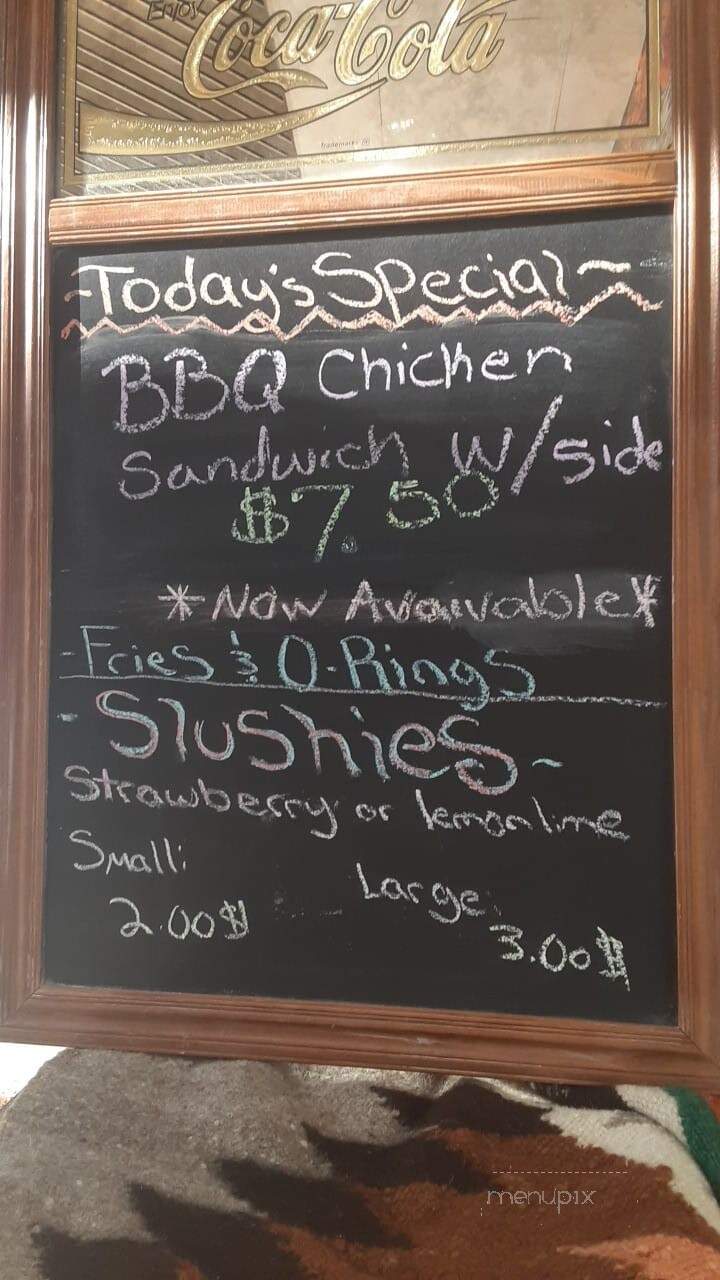 Enjoy
Coca-Cola
Trademark ®
-Today's Special~
BBQ Chicken
Sandwich w/side
$7.50
*Now Avaivable*
-Fries & O-Rings
-Slushies-
Strawberry or lemonlime
Small:
Large:
2.00$
3.00$
menupix